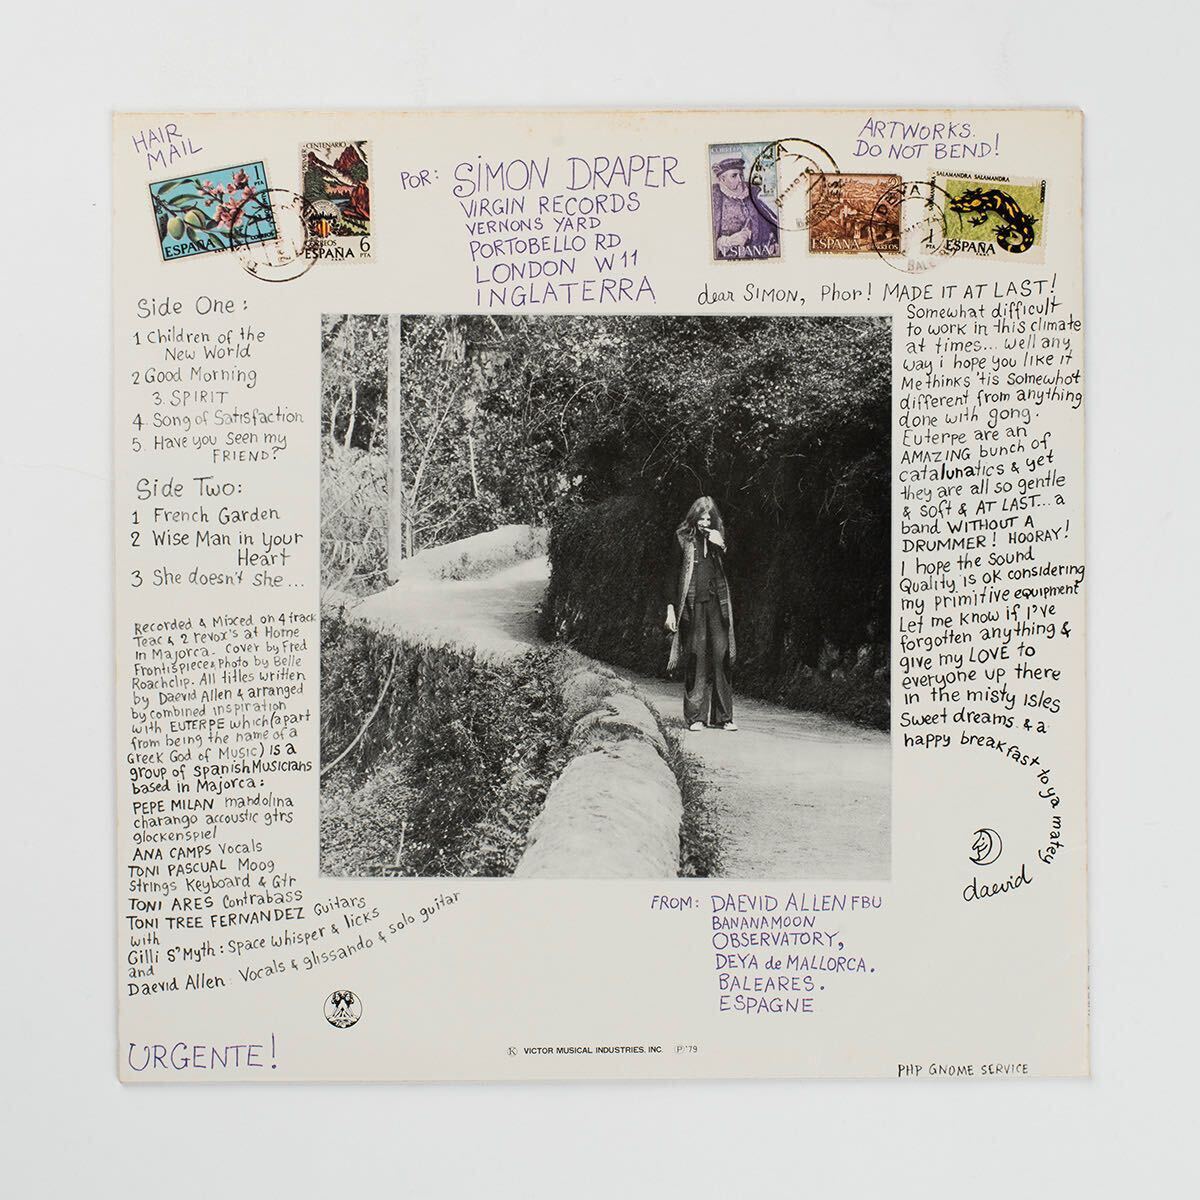 HAIR
MAIL
1
PTA
ESPAÑA
CORREOS
CENTENARIO
CORREOS
ESPAÑA
6
PTA
POR: SiMON DRAPER
VIRGIN RECORDS
VERNONS YARD
PORTOBELLO RD
LONDON W11
INGLATERRA
CORREOS
ESPAÑA
DEYA
ESPAÑA
CORREOS
DEYA
SALAMANDRA SALAMANDRA
CORREOS
1
PTA
ESPAÑA
ARTWORKS.
DO NOT BEND!
Side One:
1 Children of the
New World
2 Good Morning
3. SPIRIT
4. Song of Satisfaction
5. Have you seen my
FRIEND?
Side Two:
1 French Garden
2 Wise Man in your
Heart
3 She doesn't she...
Recorded & Mixed on 4 track
Teac & 2 revox's at Home
in Majorca. Cover by Fred
Frontispiece & Photo by Belle
Roachclip. All titles written
by Daevid Allen & arranged
by combined inspiration
with EUTERPE which (apart
from being the name of a
Greek God of Music) is a
group of Spanish Musicians
based in Majorca:
PEPE MILAN mandolina
charango accoustic gtrs
glockenspiel
ANA CAMPS Vocals
TONI PASCUAL Moog
Strings Keyboard & Gtr
TONI ARES Contrabass
TONI TREE FERNANDEZ Guitars
with
Gilli S'Myth: Space whisper & licks
and
Daevid Allen: Vocals & glissando & solo guitar
URGENTE!
dear SIMON, Phor! MADE IT AT LAST!
Somewhat difficult
to work in this climate
at times... well any
way i hope you like it
Me thinks 'tis somewhat
different from anything
done with gong.
Euterpe are an
AMAZING bunch of
catalunatics & yet
they are all so gentle
& soft & AT LAST... a
band WITHOUT A
DRUMMER! HOORAY!
I hope the sound
Quality is ok considering
my primitive equipment
Let me know if I've
forgotten anything &
give my LOVE to
everyone up there
in the misty isles
Sweet dreams & a
happy breakfast to ya matey
daevid
FROM: DAEVID ALLEN FBU
BANANAMOON
OBSERVATORY,
DEYA de MALLORCA.
BALEARES.
ESPAGNE
Ⓚ VICTOR MUSICAL INDUSTRIES. INC. Ⓟ'79
PHP GNOME SERVICE